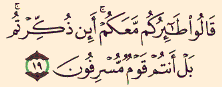 قَالُوا۟ طَـٰٓئِرُكُم مَّعَكُمْ ۚ أَئِن ذُكِّرْتُم ۚ
بَلْ أَنتُمْ قَوْمٌ مُّسْرِفُونَ ١٩